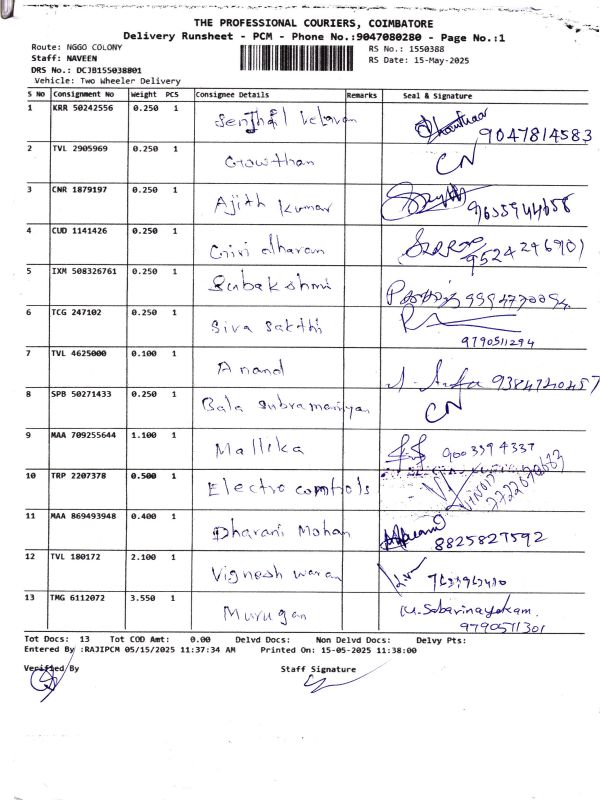 THE PROFESSIONAL COURIERS, COIMBATORE
Delivery Runsheet - PCM - Phone No.:9047080280 - Page No.:1
Route: NGGO COLONY RS No.: 1550388
Staff: NAVEEN RS Date: 15-May-2025
DRS No.: DCJB155038801
Vehicle: Two Wheeler Delivery
S No Consignment No Weight PCS Consignee Details Remarks Seal & Signature
1 KRR 50242556 0.250 1 Senthil Velavan 9047814583
2 TVL 2905969 0.250 1 Gowthan CN
3 CNR 1879197 0.250 1 Ajith Kumar
4 CUD 1141426 0.250 1 Giri dharan 9524246901
5 IXM 508326761 0.250 1 Subakshmi
6 TCG 247102 0.250 1 Siva Sakthi 9790511294
7 TVL 4625000 0.100 1 Anand 9384740457
8 SPB 50271433 0.250 1 Bala Subramaniyan CN
9 MAA 709255644 1.100 1 Mallika 9003394337
10 TRP 2207378 0.500 1 Electro controls VINOTH
11 MAA 869493948 0.400 1 Dharani Mohan 8825827592
12 TVL 180172 2.100 1 Vignesh waran
13 TMG 6112072 3.550 1 Murugan M. Sabarinayakam.
9790511301
Tot Docs: 13 Tot COD Amt: 0.00 Delvd Docs: Non Delvd Docs: Delvy Pts:
Entered By :RAJIPCM 05/15/2025 11:37:34 AM Printed On: 15-05-2025 11:38:00
Verified By Staff Signature